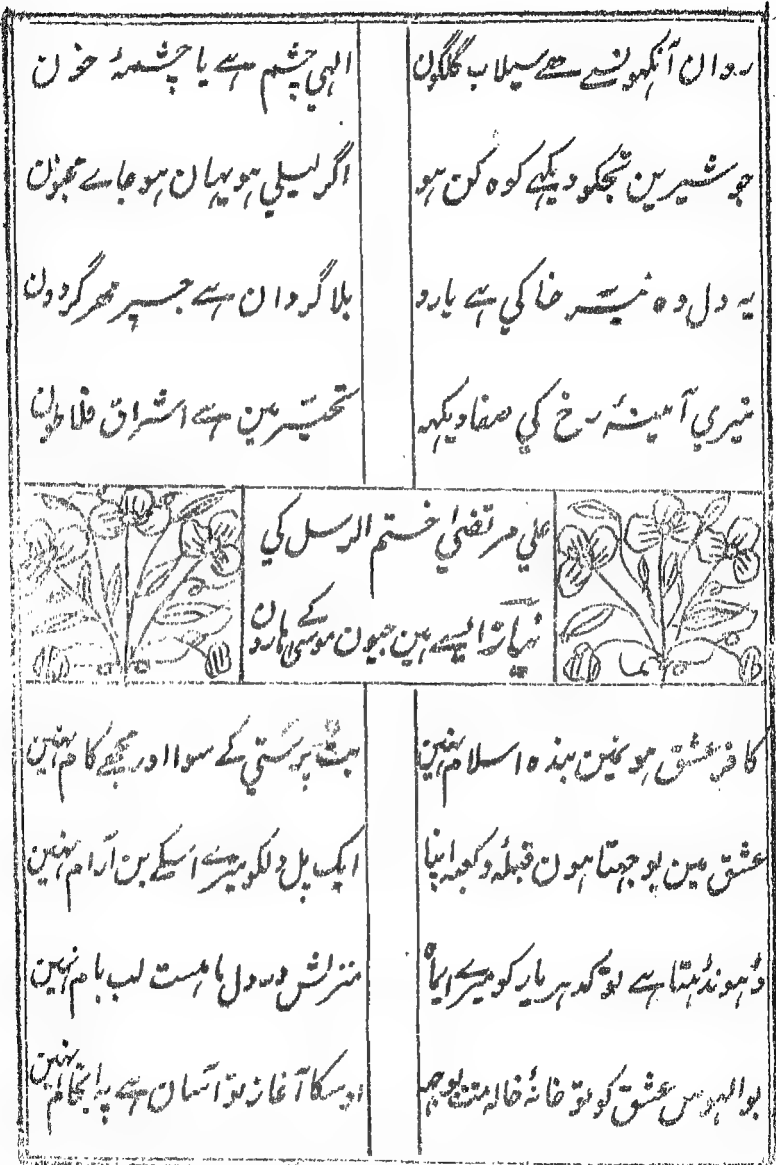 روان آنکھونسے ہے سیلاب گلگون
الہی چشم ہے یا چشمۂ خون
جو شیرین تجکو دیکھے کوہ کن ہو
اگر لیلی ہو یہان ہو جاے مجنون
یہ دل وہ نیّر خاکی ہے یارو
بلا گردان ہے جسپر مہر گردون
تیری آئینۂ رخ کی صفا دیکہہ
تحیّر مین ہے اشراق فلاطون
علی مرتضی ختم الرسل کی
نیاز ایسے ہین جیون موسی کے ہارون
کافر عشق ہو نمین بندہ اسلام نہین
بت پرستی کے سوا اور مجھے کام نہین
عشق مین پوجہتا ہون قبلہ و کعبہ اپنا
ایک پل دلکو میرے اسکے بن آرام نہین
ڈہونڈہتا ہے تو کدہر یار کو میرے ایماہ
منزلش در دل ما هست لب بام نہین
بوالہوس عشق کو تو خانۂ خالہ مت بوجہ
اوسکا آغاز تو آسان ہے پر انجام نہین